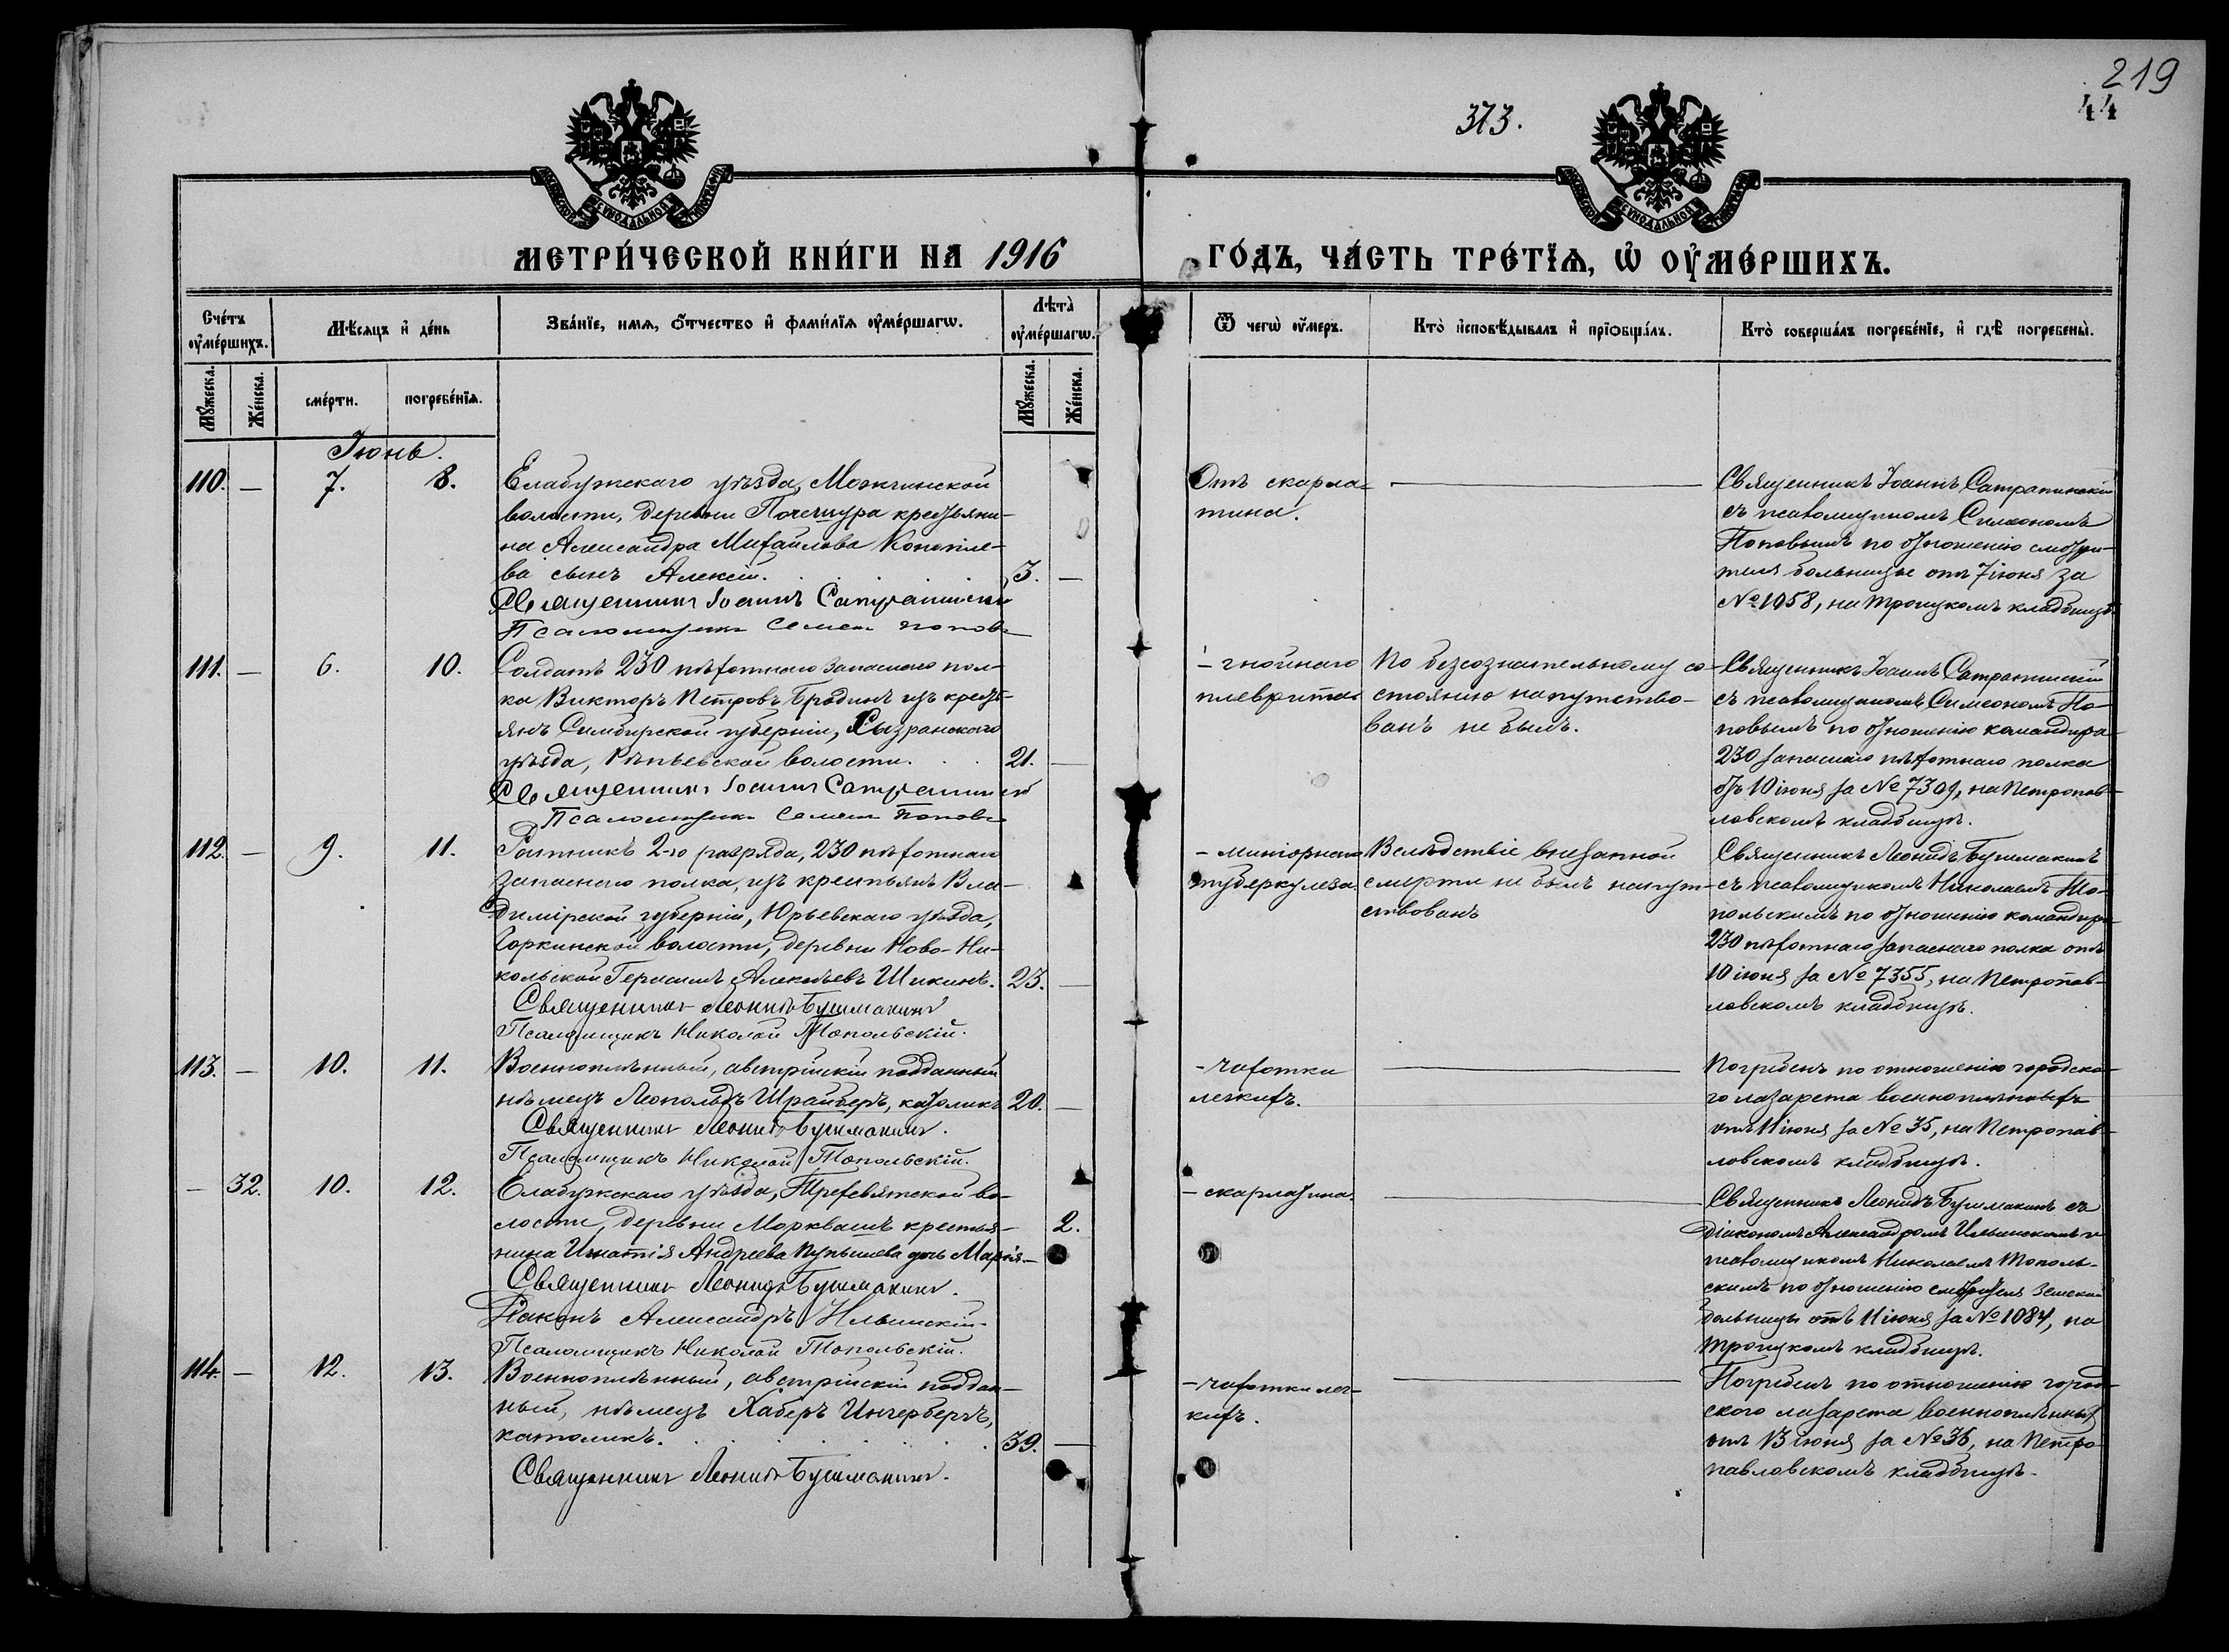 219
44
373.
МЕТРИ́ЧЕСКОЙ КНИ́ГИ НА 1916
ГО́ДЪ, ЧА́СТЬ ТРЕ́ТЇѦ, Ѡ҆ ОУ҆МЕ́РШИХЪ.
Сче́тъ оу҆ме́ршихъ.
Мѣ́сяцъ и҆ де́нь
Зва́нїе, имѧ, о҆́тчество и҆ фамилїѧ оу҆ме́ршагѡ.
Лѣта̀ оу҆ме́ршагѡ.
Ѿ чегѡ̀ оу҆́меръ.
Кто̀ и҆сповѣ́дывалъ и҆ прїѻбща́лъ.
Кто̀ соверша́лъ погребе́нїе, и҆ гдѣ̀ погребены̀.
Мꙋ́жеска.
Же́нска.
сме́рти.
погребе́нїѧ.
Мꙋ́жеска.
Же́нска.
Іюнь.
110. — 7. 8.
Елабужскаго уѣзда, Можгинской
волости, деревни Почешура крестьяни-
на Александра Михайлова Коноппле-
ва сынъ Алексій. 3. —
Священникъ Іоаннъ Сатрапинскій
Псаломщикъ Семен Попов
Отъ скарла-
тина.
Священникъ Іоаннъ Сатрапинскій
съ псаломщикомъ Симеономъ
Поповымъ по отношенію смотри-
теля больницы отъ 7 іюня за
№ 1058, на Троицкомъ кладбищѣ.
111. — 6. 10.
Солдатъ 230 пѣхотнаго запаснаго пол-
ка Викторъ Петровъ Бродинъ изъ кресть-
янъ Симбирской губерніи, Сызранскаго
уѣзда, Рѣпьевской волости. 21. —
Священникъ Іоаннъ Сатрапинскій
Псаломщикъ Семен Попов
- гнойнаго
плеврита
По безсознательному со-
стоянію напутство-
ванъ не былъ.
Священникъ Іоаннъ Сатрапинскій
съ псаломщикомъ Симеономъ По-
повымъ по отношенію командира
230 запаснаго пѣхотнаго полка
отъ 10 іюня за № 7309, на Петропав-
ловскомъ кладбищѣ.
112. — 9. 11.
Ратникъ 2-го разряда, 230 пѣхотнаго
запаснаго полка, изъ крестьянъ Вла-
димірской губерніи, Юрьевскаго уѣзда,
Горкинской волости, деревни Ново-Ни-
кольской Германъ Алексѣевъ Шикинъ. 23. —
Священникъ Леонидъ Бушмакинъ
Псаломщикъ Николай Топольскій.
- миліорнаго
туберкулеза.
Вслѣдствіе внезапной
смерти не былъ напут-
ствованъ
Священникъ Леонидъ Бушмакинъ
съ псаломщикомъ Николаемъ То-
польскимъ по отношенію командира
230 пѣхотнаго запаснаго полка отъ
10 іюня за № 7355, на Петропав-
ловскомъ кладбищѣ.
113. — 10. 11.
Военноплѣнный, австрійскій подданный
нѣмецъ Леопольдъ Шрайберъ, католикъ 20. —
Священникъ Леонидъ Бушмакинъ.
Псаломщикъ Николай Топольскій.
- чахотки
легкихъ.
Погребенъ по отношенію городска-
го лазарета военноплѣнныхъ
отъ 11 іюня за № 35, на Петропав-
ловскомъ кладбищѣ.
— 32. 10. 12.
Елабужскаго уѣзда, Трехсвятской во-
лости, деревни Морквашъ крестья-
нина Игнатія Андреева дочь Марія — 2.
Священникъ Леонидъ Бушмакинъ.
Діаконъ Александръ Ильинскій
Псаломщикъ Николай Топольскій.
- скарлатина
Священникъ Леонидъ Бушмакинъ съ
діакономъ Александромъ Ильинскимъ и
псаломщикомъ Николаемъ Тополь-
скимъ по отношенію смотрителя земской
больницы отъ 11 іюня за № 1084, на
Троицкомъ кладбищѣ.
114. — 12. 13.
Военноплѣнный, австрійскій поддан-
ный, нѣмецъ Хаберъ Ингербергъ,
католикъ. 39. —
Священникъ Леонидъ Бушмакинъ.
- чахотки лег-
кихъ.
Погребенъ по отношенію город-
ского лазарета военноплѣнныхъ
отъ 13 іюня за № 36, на Петро-
павловскомъ кладбищѣ.